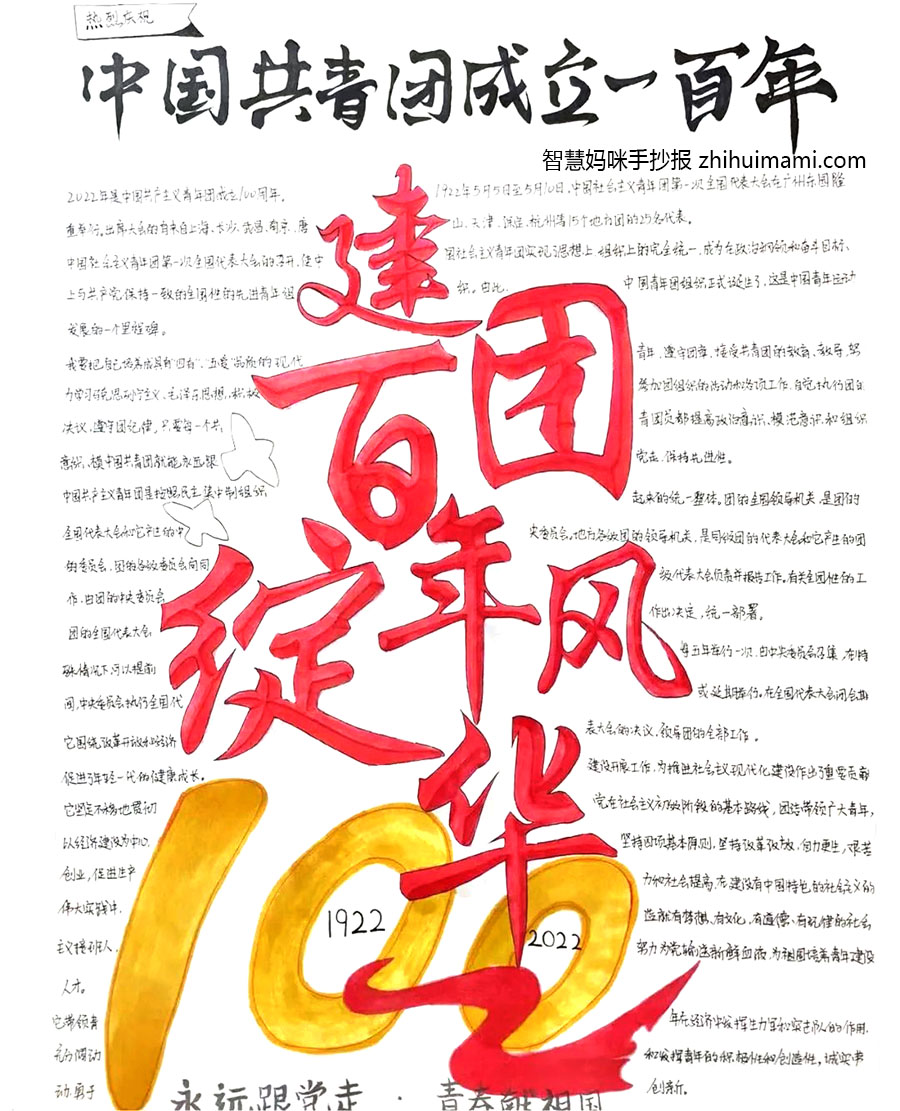 热烈庆祝
中国共青团成立一百年
智慧妈咪手抄报 zhihuimami.com
2022年是中国共产主义青年团成立100周年。 1922年5月5日至5月10日,中国社会主义青年团第一次全国代表大会在广州东园隆
重举行。出席大会的有来自上海、长沙、武昌、南京、唐山、天津、保定、杭州等15个地方团的25名代表。
中国社会主义青年团第一次全国代表大会的召开,使中国社会主义青年团实现了思想上、组织上的完全统一,成为在政治纲领和奋斗目标、
上与共产党保持一致的全国性的先进青年组织。由此, 中国青年团组织正式诞生了,这是中国青年运动
发展的一个里程碑。
建团百年绽风华
我要把自己培养成具有"四有"、五爱"品质的现代青年,遵守团章,接受共青团的教育、教导,努
力学习马列主义,毛泽东思想,积极参加团组织的活动和各项工作,自觉执行团的
决议,遵守团纪律,只要每一个共青团员都提高政治意识、模范意识和组织
意识,模中国共青团就能永远跟党走,保持先进性。
中国共产主义青年团是按照民主集中制组织起来的统一整体。团的全国领导机关,是团的
全国代表大会和它产生的中央委员会。地方各级团的领导机关,是同级团的代表大会和它产生的团
的委员会。团的各级委员会向同级代表大会负责并报告工作。有关全团性的工
作,由团的中央委员会作出决定,统一部署。
团的全国代表大会,每五年举行一次,由中央委员会召集,在特
殊情况下可以提前或延期举行。在全国代表大会闭会期
间,中央委员会执行全国代表大会的决议,领导团的全部工作。
它围绕改革开放和经济建设开展工作,为推进社会主义现代化建设作出了重要贡献
促进了年轻一代的健康成长。
它坚定不移地贯彻党在社会主义初级阶段的基本路线,团结带领广大青年,
以经济建设为中心,坚持四项基本原则,坚持改革开放,自力更生,艰苦
创业,促进生产力和社会提高,在建设有中国特色的社会主义的
伟大实践中,造就有梦想、有文化、有道德、有纪律的社会
主义接班人,努力为党输送新鲜血液,为祖国培养青年建设
人才。
它带领青年在经济中发挥生力军和突击队的作用,
充分调动和发挥青年的积极性和创造性,诚实申
动,勇于创新。
100
1922
2022
永远跟党走 · 青春献祖国